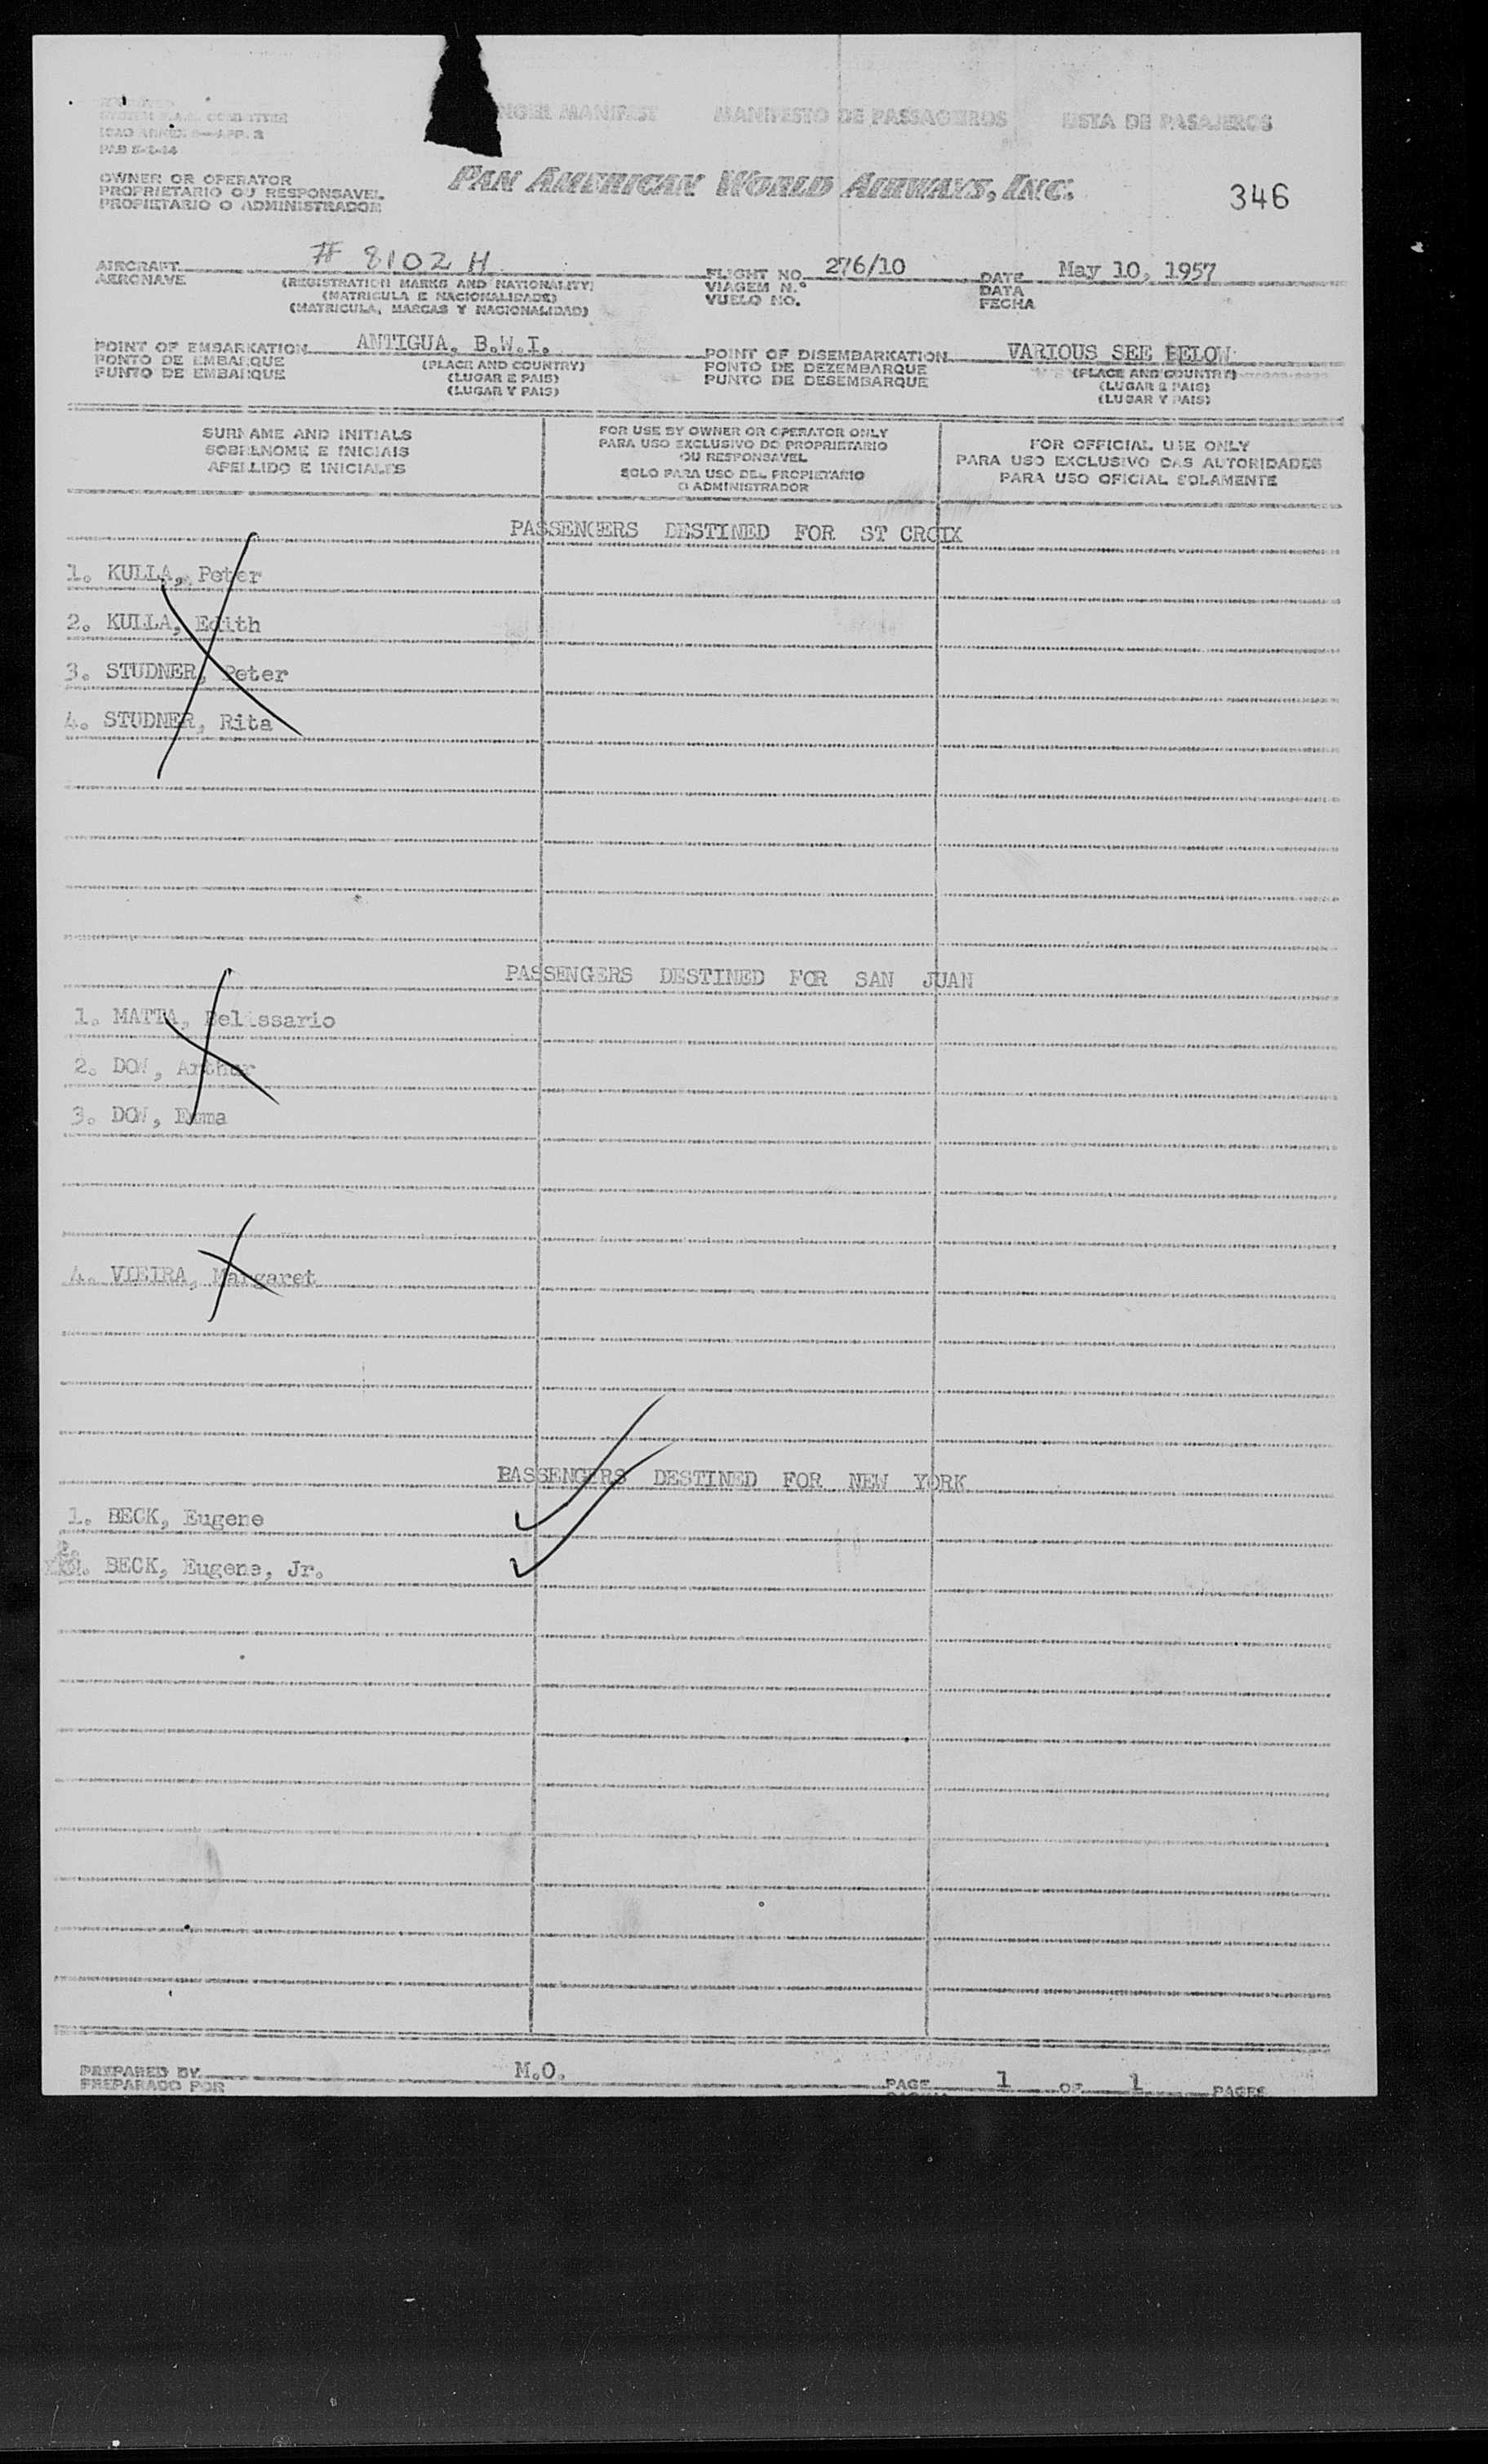 NGER MANIFEST MANIFESTO DE PASSAGEIROS LISTA DE PASAJEROS
COMMITTEE
ICAO ANNEX 9—APP. 3
OWNER OR OPERATOR
PROPRIETARIO OU RESPONSAVEL
PROPIETARIO O ADMINISTRADOR
PAN AMERICAN WORLD AIRWAYS, INC.
346
AIRCRAFT # 8102 H FLIGHT NO. 276/10 DATE May 10, 1957
AERONAVE (REGISTRATION MARKS AND NATIONALITY) VIAGEM N.º DATA
(MATRICULA E NACIONALIDADE) VUELO NO. FECHA
(MATRICULA, MARCAS Y NACIONALIDAD)
POINT OF EMBARKATION ANTIGUA, B.W.I. POINT OF DISEMBARKATION VARIOUS SEE BELOW
PONTO DE EMBARQUE (PLACE AND COUNTRY) PONTO DE DEZEMBARQUE (PLACE AND COUNTRY)
PUNTO DE EMBARQUE (LUGAR E PAIS) PUNTO DE DESEMBARQUE (LUGAR E PAIS)
(LUGAR Y PAIS) (LUGAR Y PAIS)
SURNAME AND INITIALS
SOBRENOME E INICIAIS
APELLIDO E INICIALES
FOR USE BY OWNER OR OPERATOR ONLY
PARA USO EXCLUSIVO DO PROPRIETARIO
OU RESPONSAVEL
SOLO PARA USO DEL PROPIETARIO
O ADMINISTRADOR
FOR OFFICIAL USE ONLY
PARA USO EXCLUSIVO DAS AUTORIDADES
PARA USO OFICIAL SOLAMENTE
PASSENGERS DESTINED FOR ST CROIX
1. KULLA, Peter
2. KULLA, Edith
3. STUDNER, Peter
4. STUDNER, Rita
PASSENGERS DESTINED FOR SAN JUAN
1. MATTA, Belissario
2. DOW, Arthur
3. DOW, Emma
4. VIEIRA, Margaret
PASSENGERS DESTINED FOR NEW YORK
1. BECK, Eugene
2.
BECK, Eugene, Jr.
PREPARED BY M.O. PAGE 1 OF 1 PAGES
PREPARADO POR